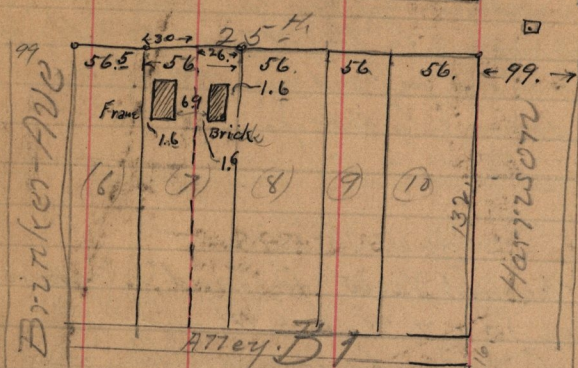 25 H.
←30→
99
56.5
←56
26.→
56.
56
56.
←99.→
Frame
69
1.6
1.6
Brick
1.6
(6)
(7)
(8)
(9)
(10)
132
Brinker-Ave
Harrison
Alley.
16